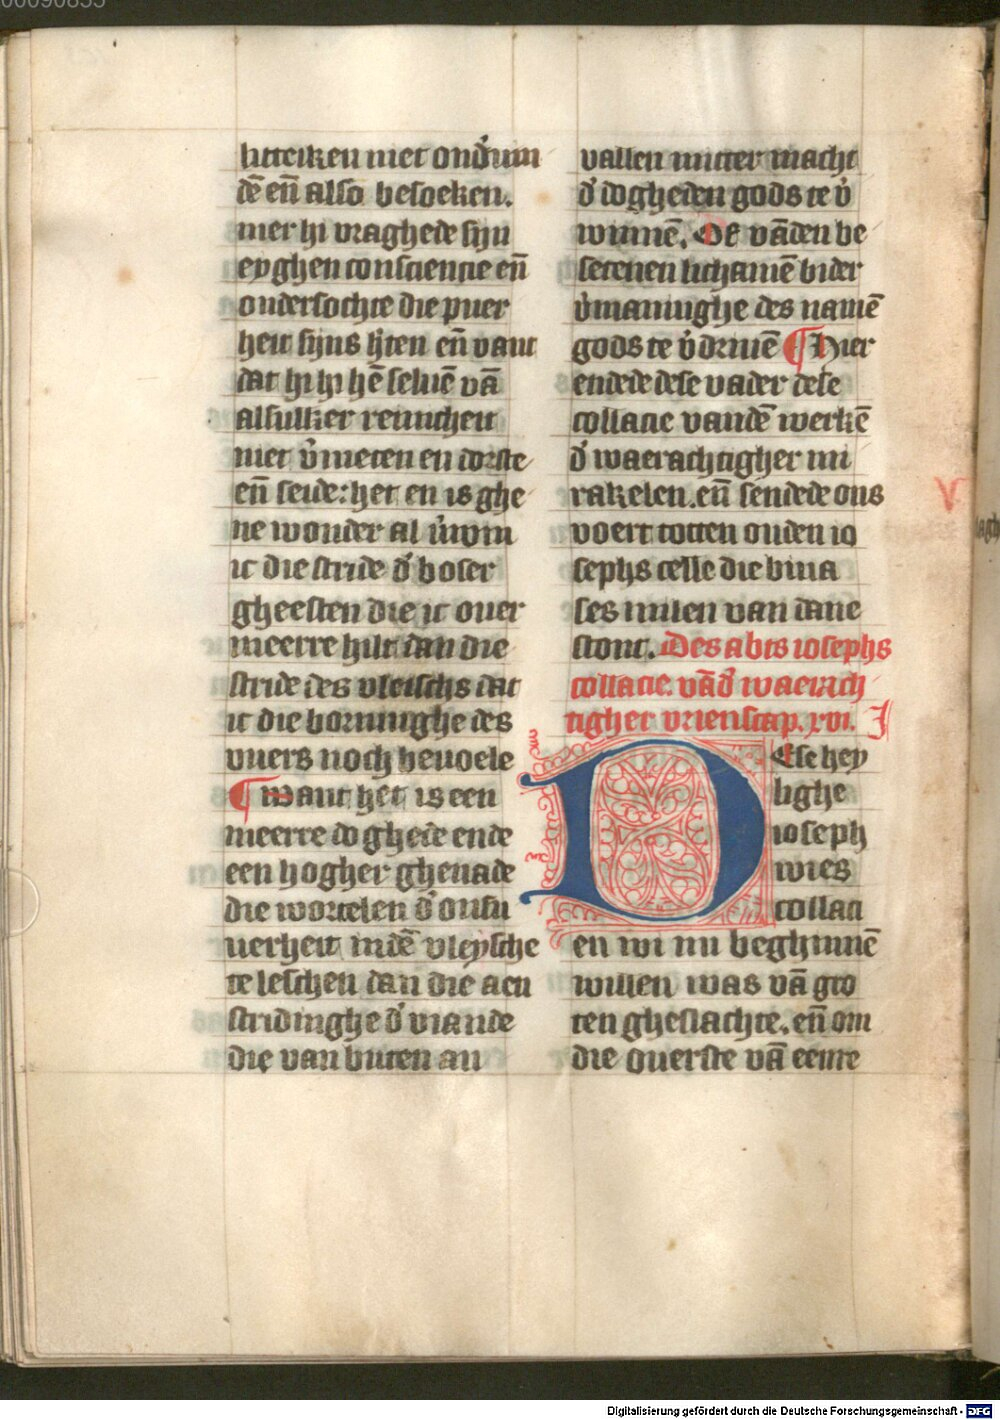 litteiken niet ond̾uin
dē eñ also besoeken.
mer hi vraghede sijn
eyghen consciencie eñ
ondersochte die puer
heit sijns h̾ten eñ vant
dat hi bi hē seluē vā
alsulker reinicheit
niet v̾meten en dorste
eñ seide: het en is ghe
ne wonder al v̾win
ic die stride d̾ boser
gheesten die ic ouer
meerre hilt dan die
stride des vleischs dat
ic die borninghe des
vuers noch beuoele
¶ want het is een
meerre doghede ende
een hogher ghenade
die wortelen d̾ onsu
uerheit indē vleysche
te leschen dan die aen
stridinghe d̾ viande
die van buten an
vallen mitter macht
d̾ dogheden gods te v̾
winnē. Of vādeN be
setenen lichamē bider
v̾maninghe des namē
gods te v̾driuē ¶ Hier
endede dese vader dese
collacie vandē werkē
d̾ waerachtigher mi
rakelen. eñ sendede ons
voert totten ouden io
sephs celle die bina
ses milen van dane
stont. Des abts iosephs
collacie. vād̾ waerach
tigher vrienscap. xvi. I
DEse hey
lighe
ioseph
wies
collaci
en wi nu beghinnē
willen was vā gro
ten gheslachte. eñ om
die ouerste vā eenre
V
Digitalisierung gefördert durch die Deutsche Forschungsgemeinschaft - DFG